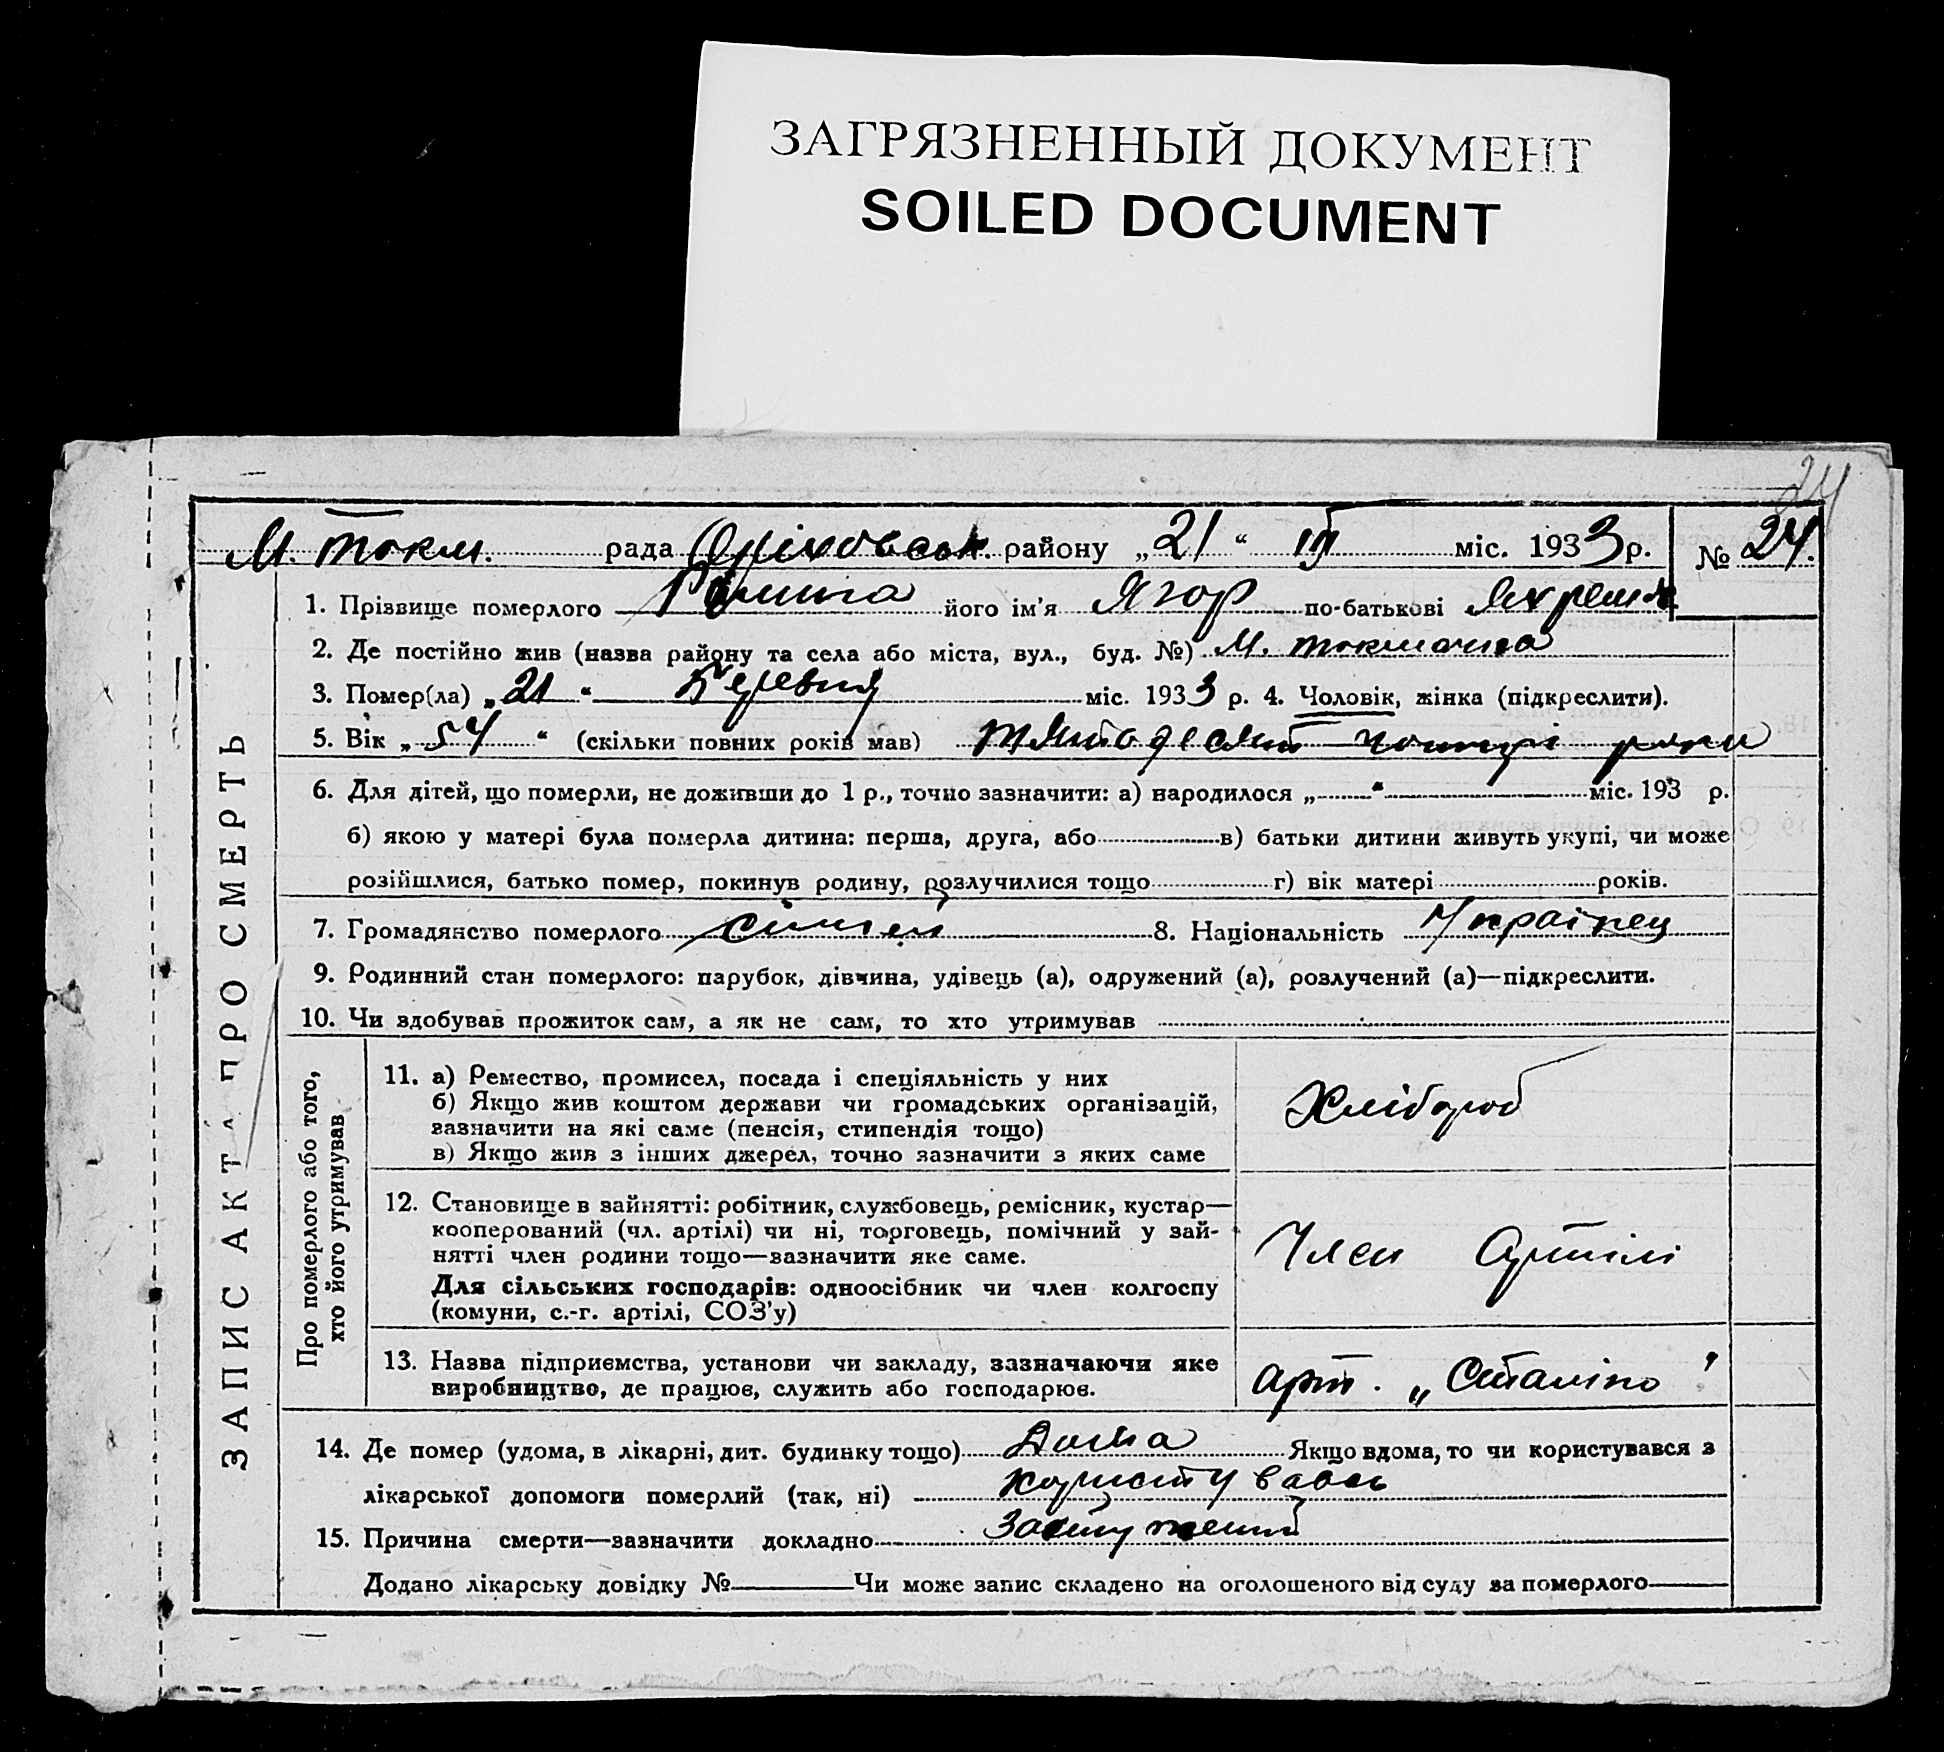 ЗАГРЯЗНЕННЫЙ ДОКУМЕНТ
SOILED DOCUMENT
24
М. Токм. рада Оріховськ. району „21“ III міс. 1933 р. № 24.
1. Прізвище померлого його ім'я Ягор по-батькові
2. Де постійно жив (назва району та села або міста, вул., буд. №) М. токмачка
3. Помер(ла) „21“ міс. 1933 р. 4. Чоловік, жінка (підкреслити).
5. Вік „54“ (скільки повних років мав) чотирі роки
6. Для дітей, що померли, не доживши до 1 р., точно зазначити: а) народилося „ “ міс. 193 р.
б) якою у матері була померла дитина: перша, друга, або в) батьки дитини живуть укупі, чи може
розійшлися, батько помер, покинув родину, розлучилися тощо г) вік матері років.
7. Громадянство померлого 8. Національність Українец
9. Родинний стан померлого: парубок, дівчина, удівець (а), одружений (а), розлучений (а)—підкреслити.
10. Чи здобував прожиток сам, а як не сам, то хто утримував
ЗАПИС АКТА ПРО СМЕРТЬ
Про померлого або того,
хто його утримував
11. а) Ремество, промисел, посада і спеціяльність у них
б) Якщо жив коштом держави чи громадських організацій,
зазначити на які саме (пенсія, стипендія тощо)
в) Якщо жив з інших джерел, точно зазначити з яких саме
Хлібороб
12. Становище в зайнятті: робітник, службовець, ремісник, кустар—
кооперований (чл. артілі) чи ні, торговець, помічний у зай-
нятті член родини тощо—зазначити яке саме.
Для сільських господарів: одноосібник чи член колгоспу
(комуни, с.-г. артілі, СОЗ'у)
Член Артілі
13. Назва підприємства, установи чи закладу, зазначаючи яке
виробництво, де працює, служить або господарює.
арт. „Сталіно“
14. Де помер (удома, в лікарні, дит. будинку тощо) Дома Якщо вдома, то чи користувався з
лікарської допомоги померлий (так, ні) користувавсь
15. Причина смерти—зазначити докладно
Додано лікарську довідку № Чи може запис складено на оголошеного від суду за померлого